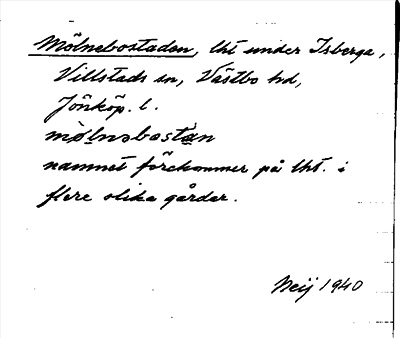 Mölnebostaden, lht under Isberga,
Villstads sn, Västbo hd,
Jönköp. l.
mølnəbostan
namnet förekommer på lht. i
flere olika gårdar.
Neij 1940